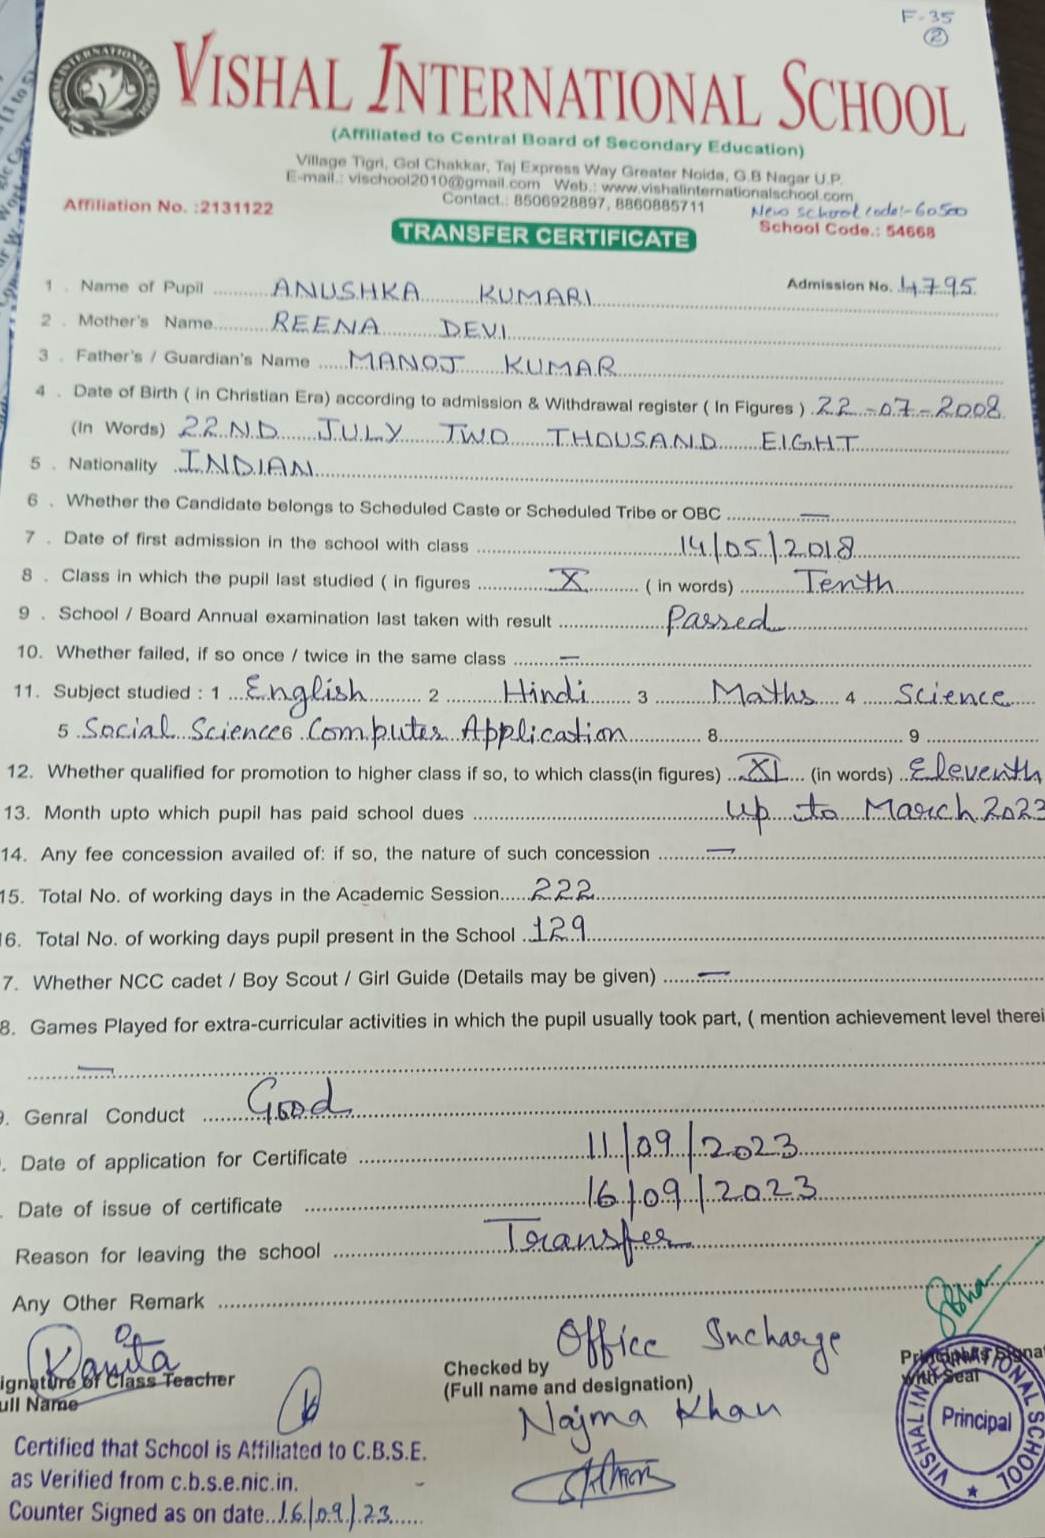 F-35
2
VISHAL INTERNATIONAL SCHOOL
(Affiliated to Central Board of Secondary Education)
Village Tigri, Gol Chakkar, Taj Express Way Greater Noida, G.B Nagar U.P.
E-mail.: vischool2010@gmail.com Web.: www.vishalinternationalschool.com
Contact.: 8506928897, 8860885711
Affiliation No. :2131122
New school code:- 60500
School Code.: 54668
TRANSFER CERTIFICATE
Admission No. 4795
1 . Name of Pupil ANUSHKA KUMARI
2 . Mother's Name REENA DEVI
3 . Father's / Guardian's Name MANOJ KUMAR
4 . Date of Birth ( in Christian Era) according to admission & Withdrawal register ( In Figures ) 22-07-2008
(In Words) 22ND JULY TWO THOUSAND EIGHT
5 . Nationality INDIAN
6 . Whether the Candidate belongs to Scheduled Caste or Scheduled Tribe or OBC —
7 . Date of first admission in the school with class 14/05/2018
8 . Class in which the pupil last studied ( in figures X ( in words) Tenth
9 . School / Board Annual examination last taken with result Passed
10. Whether failed, if so once / twice in the same class —
11. Subject studied : 1 English 2 Hindi 3 Maths 4 Science
5 Social Sciences 6 Computer Application 8 9
12. Whether qualified for promotion to higher class if so, to which class(in figures) XI (in words) Eleventh
13. Month upto which pupil has paid school dues up to March 2023
14. Any fee concession availed of: if so, the nature of such concession —
15. Total No. of working days in the Academic Session 222
16. Total No. of working days pupil present in the School 129
7. Whether NCC cadet / Boy Scout / Girl Guide (Details may be given) —
8. Games Played for extra-curricular activities in which the pupil usually took part, ( mention achievement level therei
—
. Genral Conduct Good
. Date of application for Certificate 11/09/2023
. Date of issue of certificate 16/09/2023
Reason for leaving the school Transfer
Any Other Remark
Kavita
ignature of Class Teacher
ull Name
Office Incharge
Checked by
(Full name and designation)
Najma Khan
Principal's Signa
with Seal
VISHAL INTERNATIONAL SCHOOL
Principal
Certified that School is Affiliated to C.B.S.E.
as Verified from c.b.s.e.nic.in.
Counter Signed as on date 16/09/23